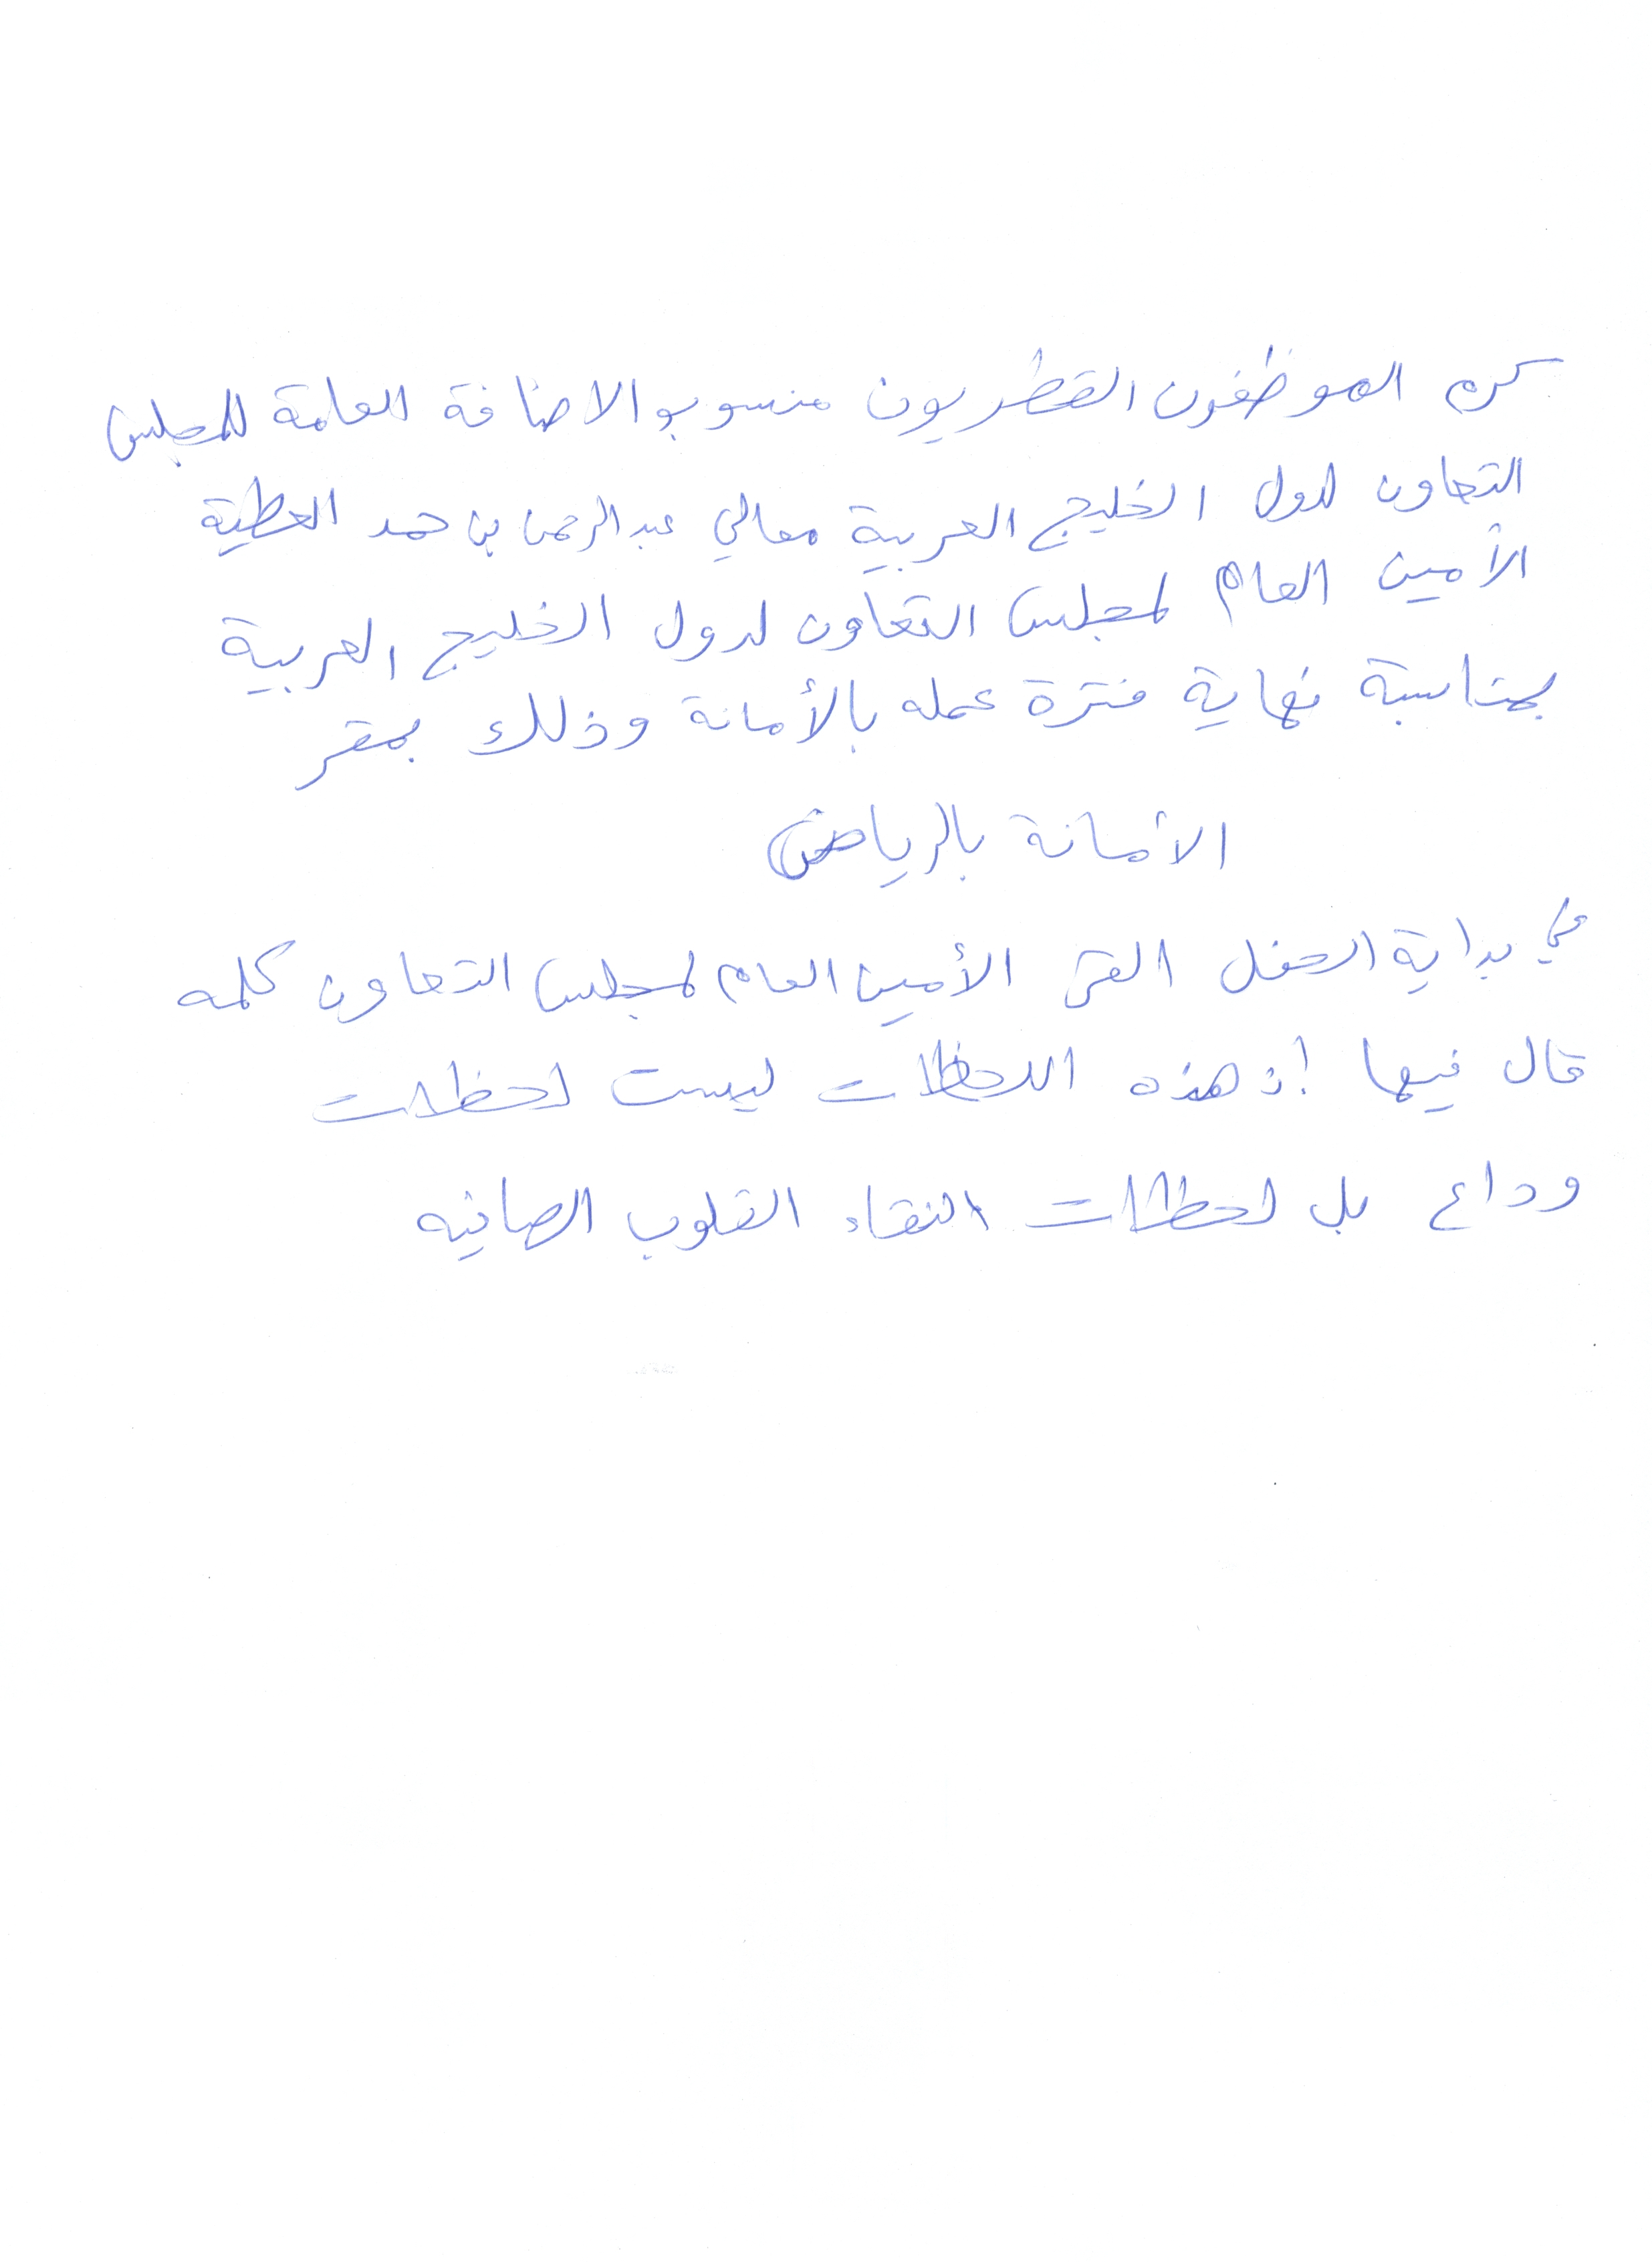 كرم الموظفون القطريون منسوبو الاضافة العامة للمجلس
التعاون لدول الخليج العربية معالي عبدالرحمن بن حمد العطية
الأمين العام لمجلس التعاون لدول الخليج العربية
بمناسبة نهاية فترة عمله بالأمانة وذلك بمقر
الأمانة بالرياض
في بداية الحفل القى الأمين العام لمجلس التعاون كلمه
قال فيها ان هذه اللحظات ليست لحظات
وداع بل لحظات التقاء القلوب الصافيه